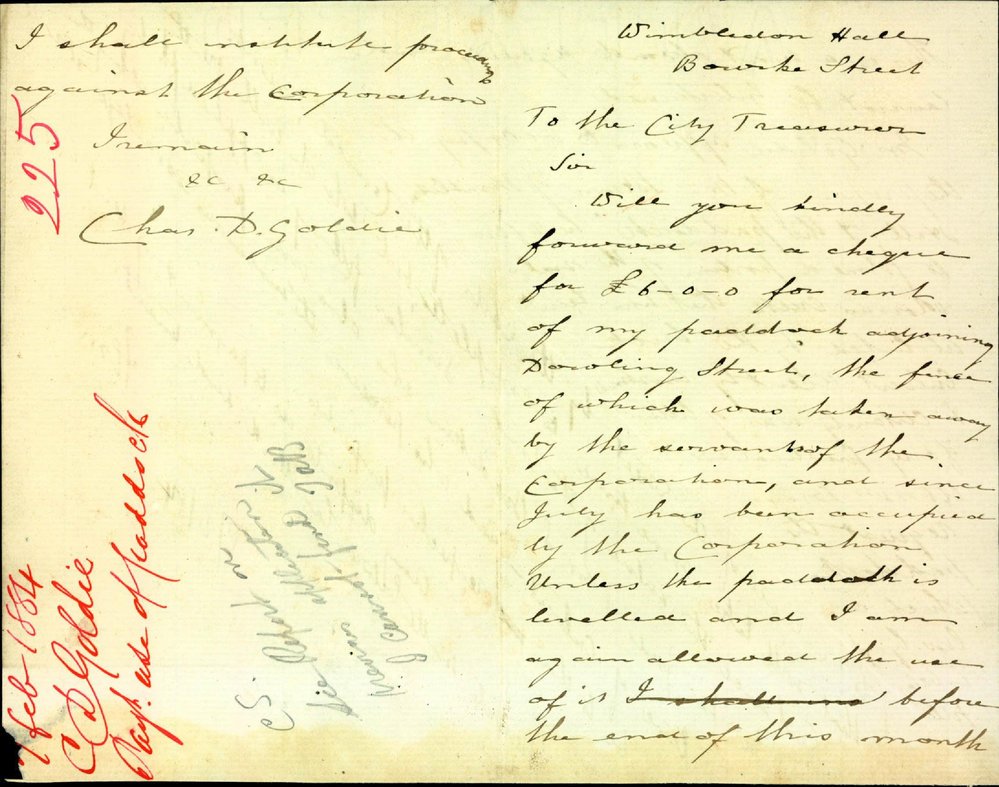 Wimbledon Hall
Bourke Street
To the City Treasurer
Sir
Will you kindly
forward me a cheque
for £6-0-0 for rent
of my paddock adjoining
Dowling Street, the fence
of which was taken away
by the servants of the
Corporation, and since
July has been occupied
by the Corporation
Unless the paddock is
levelled and I am
again allowed the use
of it I shall ins before
the end of this month
I shall institute proceedings
against the Corporation
I remain
&c &c
Chas. D. Goldie
225
7 feb 1884
C D Goldie
Payt. use of paddock
C.S.
Report on
I cannot find